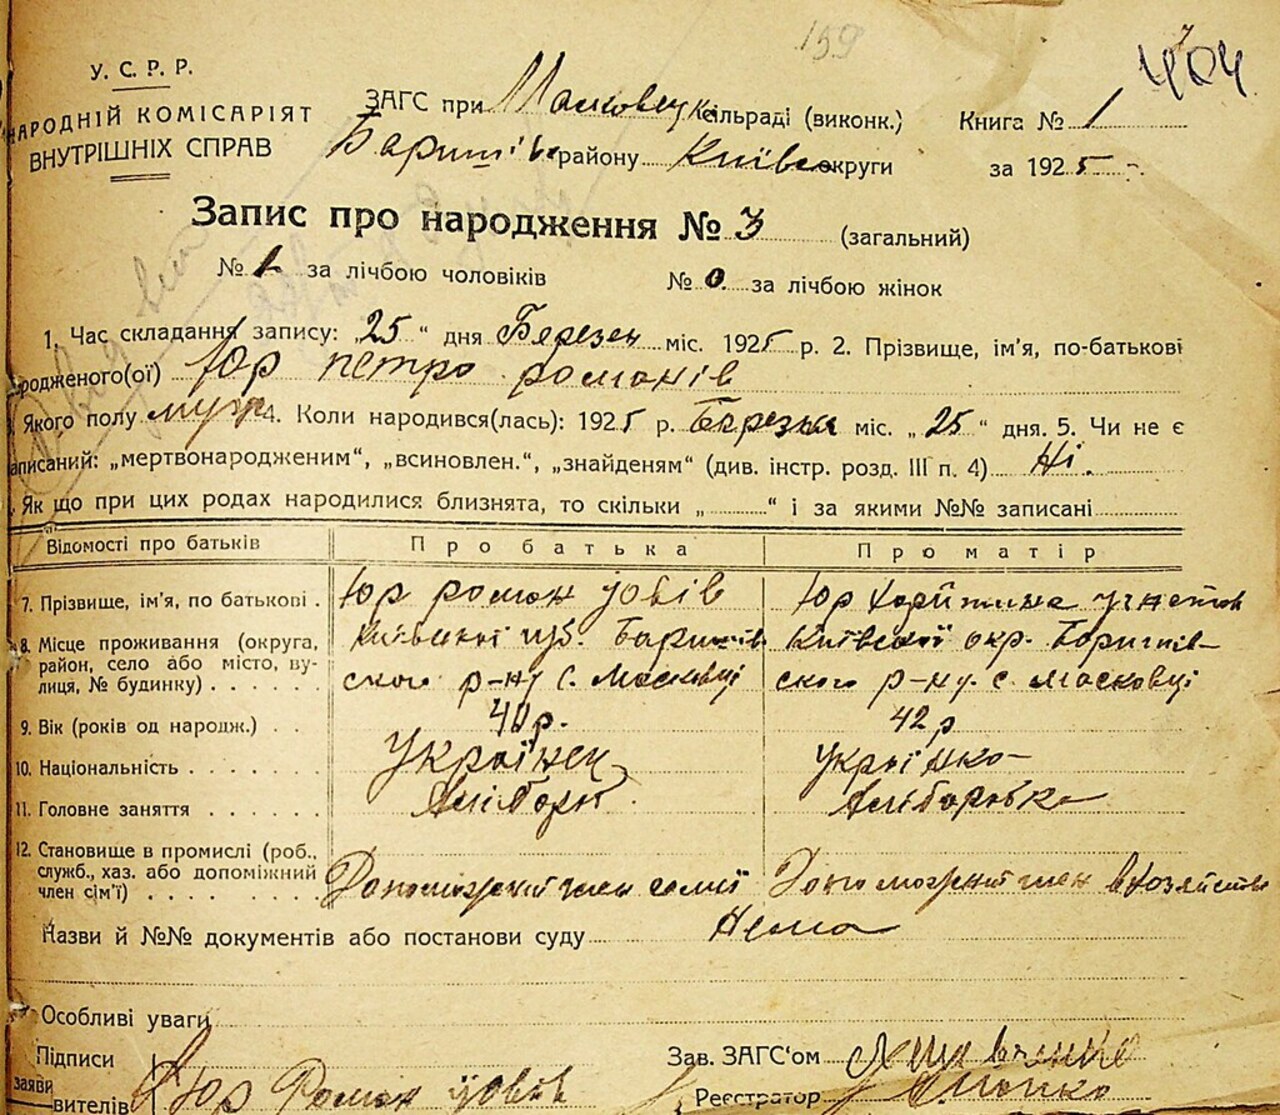 159
404
У. С. Р. Р.
НАРОДНІЙ КОМІСАРІЯТ
ВНУТРІШНІХ СПРАВ
ЗАГС при Масковец. сільраді (виконк.)
Баришів. району Київс. округи
Книга № 1
за 1925
Запис про народження № 3 (загальний)
№ 1 за лічбою чоловіків № 0 за лічбою жінок
1. Час складання запису: „25“ дня Березен міс. 1925 р. 2. Прізвище, ім'я, по-батькові
родженого(ої) Юр петро романів
Якого полу муж 4. Коли народився(лась): 1925 р. Березня міс. „25“ дня. 5. Чи не є
аписаний: „мертвонародженим“, „всиновлен.“, „знайденям“ (див. інстр. розд. III п. 4) Ні.
Як що при цих родах народилися близнята, то скільки „ “ і за якими №№ записані
Відомості про батьків Про батька Про матір
7. Прізвище, ім'я, по батькові. Юр роман йовів Юр Харитина
8. Місце проживання (округа, район, село або місто, вулиця, № будинку) Київської губ. Баришівського р-ну с. Масковці Київської окр. Баришівського р-ну с. масковці
9. Вік (років од народж.) 40 р. 42 р
10. Національність Українец Українка
11. Головне заняття Хлібороб Хліборобка
12. Становище в промислі (роб., служб., хаз. або допоміжний член сім'ї) Допоможний член семії Допоможний член в хозяйстві
Назви й №№ документів або постанови суду Нема
Особливі уваги
Підписи
заяви
вителів
Юр Роман йовів
Зав. ЗАГС'ом
Реєстратор